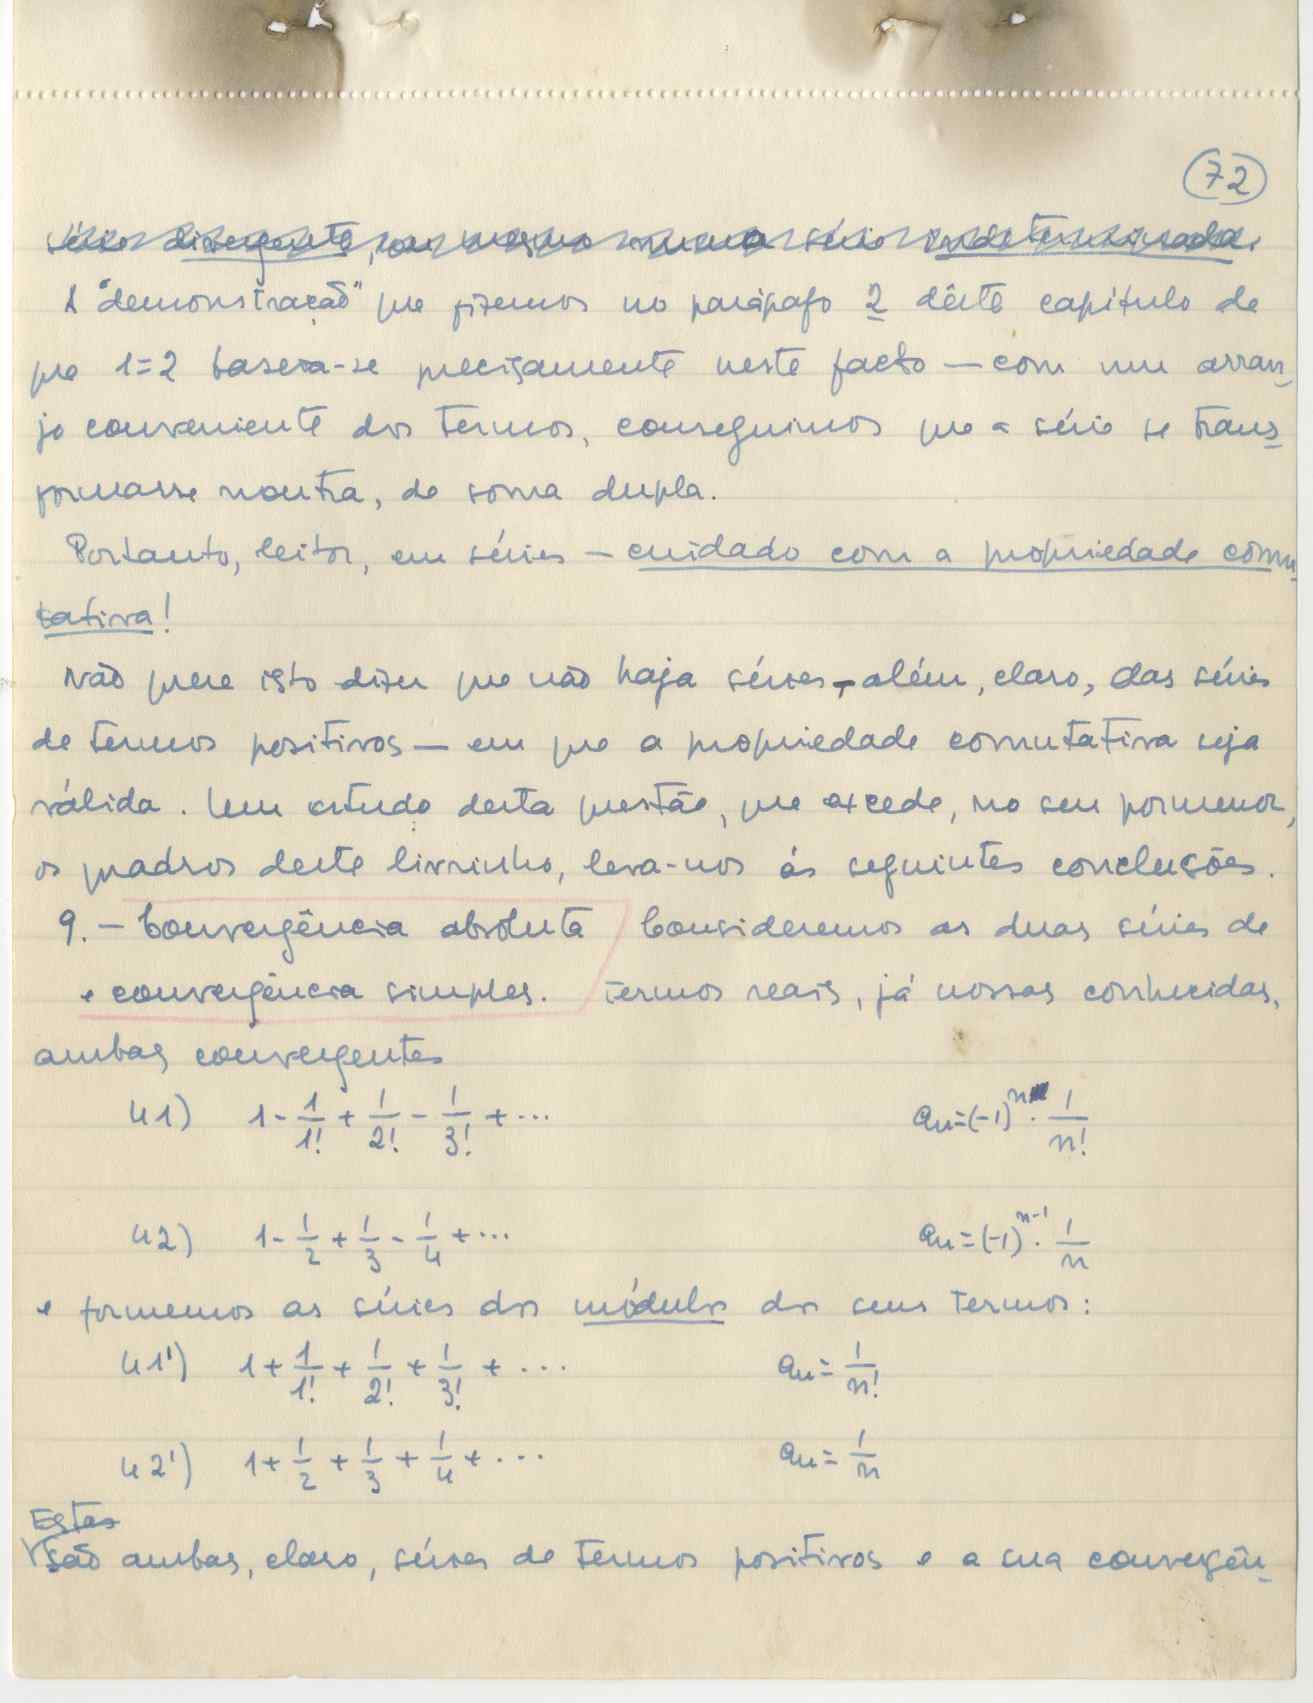 72
série divergente, ou mesmo numa série indeterminada.
A "demonstração" que fizemos no parágrafo 2 dêste capítulo de
que 1=2 baseia-se precisamente neste facto — com um arran-
jo conveniente dos termos, conseguimos que a série se trans-
formasse noutra, de soma dupla.
Portanto, leitor, em séries — cuidado com a propriedade comu-
tativa!
Não quere isto dizer que não haja séries — além, claro, das séries
de termos positivos — em que a propriedade comutativa seja
válida. Um estudo desta questão, que excede, no seu pormenor,
os quadros deste livrinho, leva-nos às seguintes conclusões.
9. — Convergência absoluta Consideremos as duas séries de
e convergência simples. termos reais, já nossas conhecidas,
ambas convergentes
41) 1 - 1/1! + 1/2! - 1/3! + ... an = (-1)^n · 1/n!
42) 1 - 1/2 + 1/3 - 1/4 + ... an = (-1)^(n-1) · 1/n
e formemos as séries dos módulos dos seus termos:
41') 1 + 1/1! + 1/2! + 1/3! + ... an = 1/n!
42') 1 + 1/2 + 1/3 + 1/4 + ... an = 1/n
Estas
são ambas, claro, séries de termos positivos e a sua convergên-